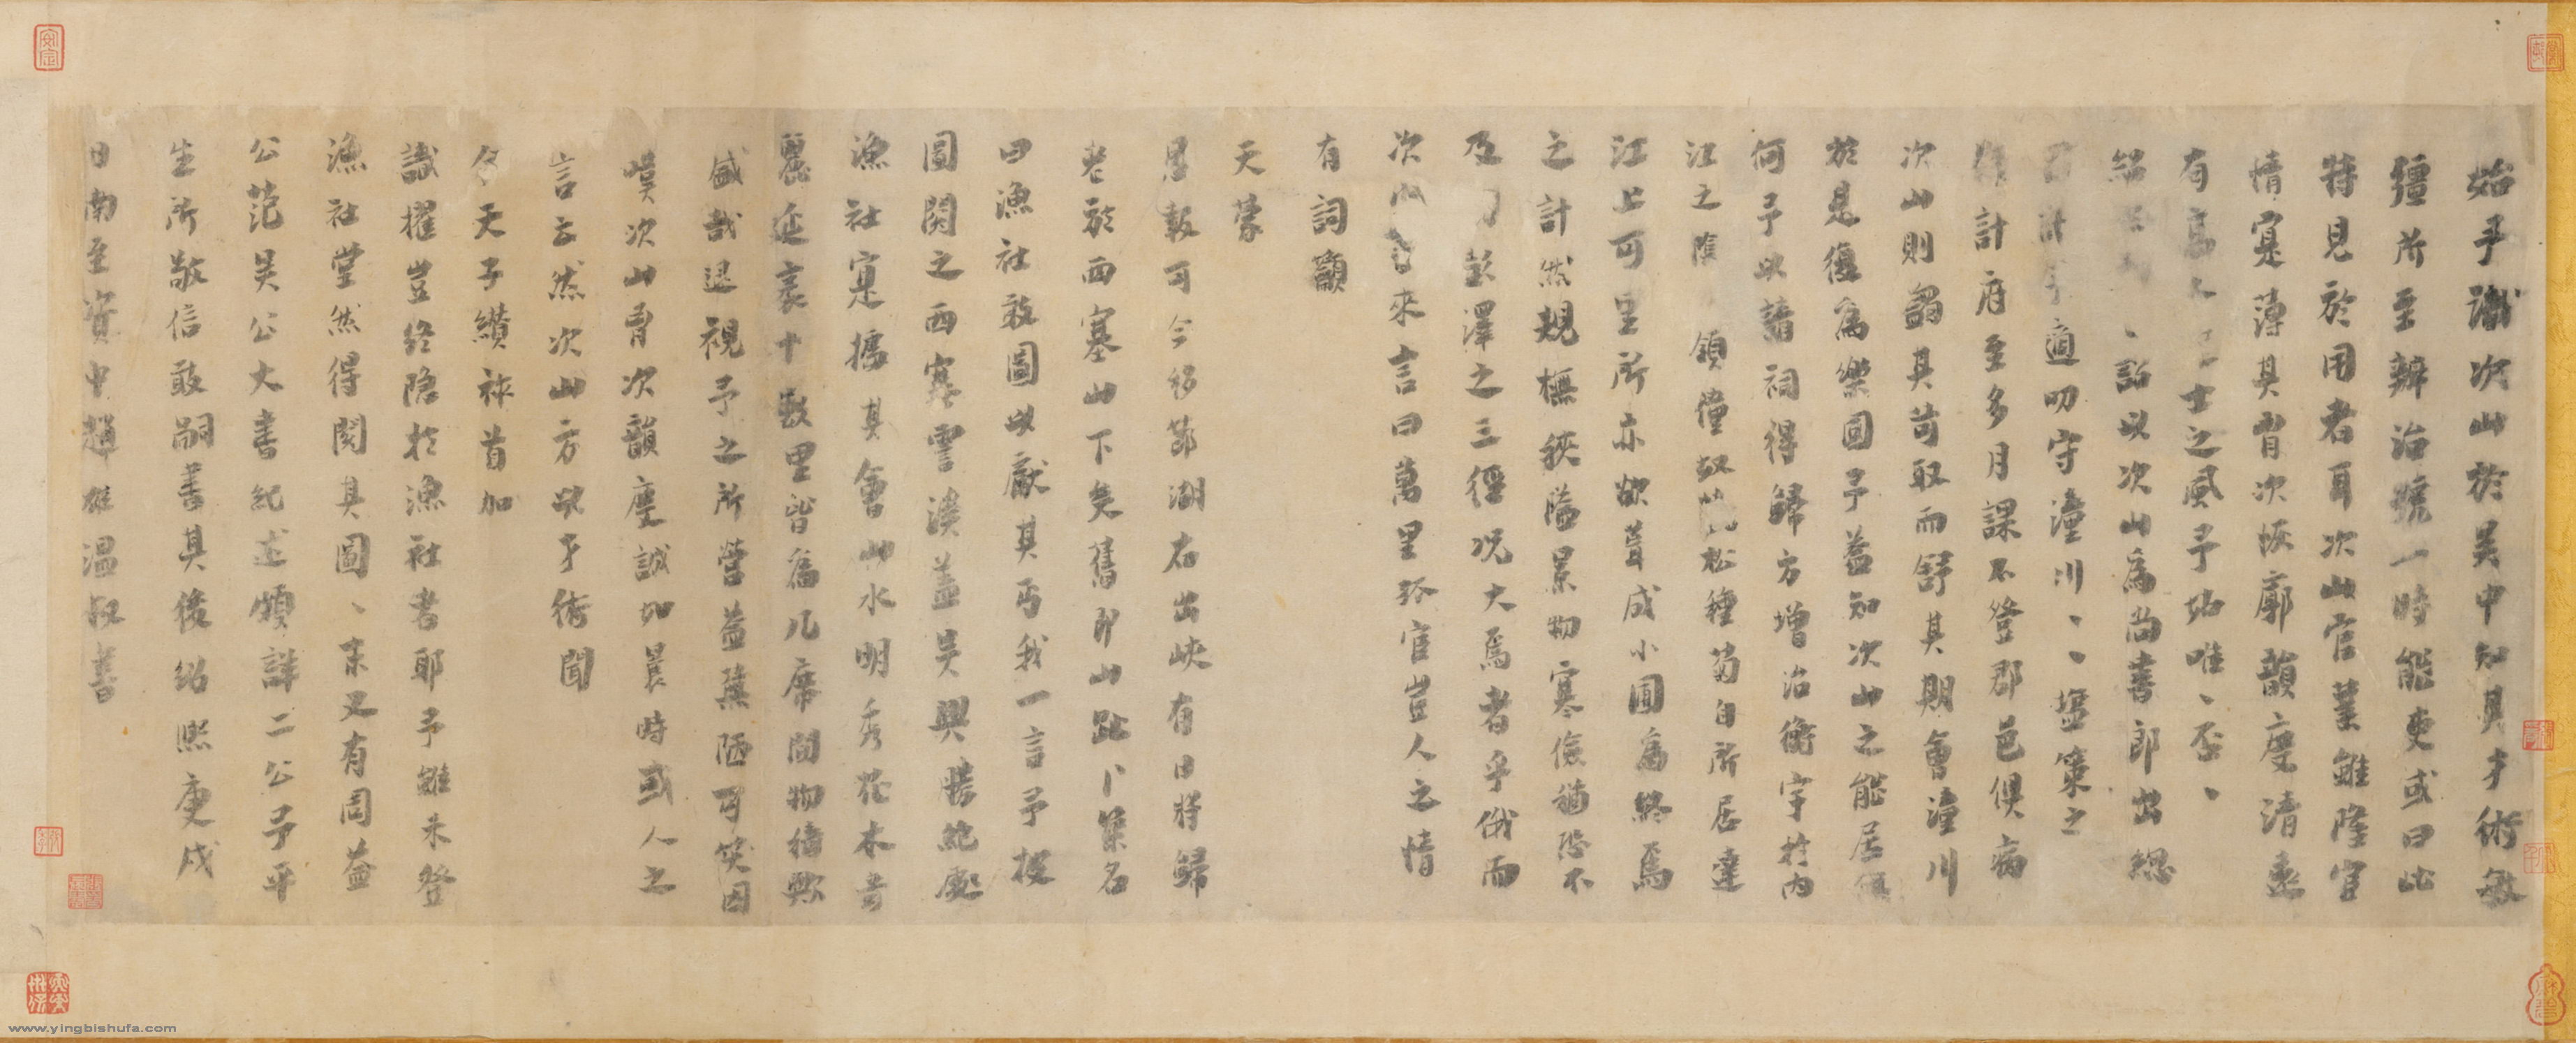 始予識次山於吳中知具才術敏
彊所至辦治號一時能吏或曰此
特見於用者耳次山官業雖隆宦
情寔薄其胷次恢廓韻度清遠
有高人 士之風予始唯、否、
紹 、詔以次山為尚書郎出總
計予適叨守潼川、、鹽筴之
計府至多月課不登郡邑俱病
次山則蠲其苛取而舒其期會潼川
於是復為樂國予益知次山之能居
何予以請祠得歸方增治衡宇於內
江之隈 領僮奴 松種菊自所居達
江上可里所亦欲葺成小圃為終焉
之計然規橅狹隘景物寒儉猶恐不
及 彭澤之三徑況大焉者乎俄而
次山書來言曰萬里孤宦豈人之情
有詞籲
天蒙
恩報可今移節湖右出峽有日將歸
老於西塞山下矣舊即山趾卜築名
曰漁社敢圖以獻其丐我一言予披
圖閱之西塞霅溪蓋吳興勝絕處
漁社寔擅其會山水明秀花木旹
麗延袤十數里皆為几席間物猗歟
盛哉退視予之所營益蕪陋可笑因
嘆次山胷次韻度誠如曩時或人之
言云然次山方以才術聞
今天子纘祚首加
識擢豈終隱於漁社者耶予雖未登
漁社堂然得閱其圖、末又有周益
公范吳公大書紀述頗詳二公予平
生所敬信敢嗣書其後紹熙庚戌
日南至資中趙雄溫叔書
www.yingbishufa.com